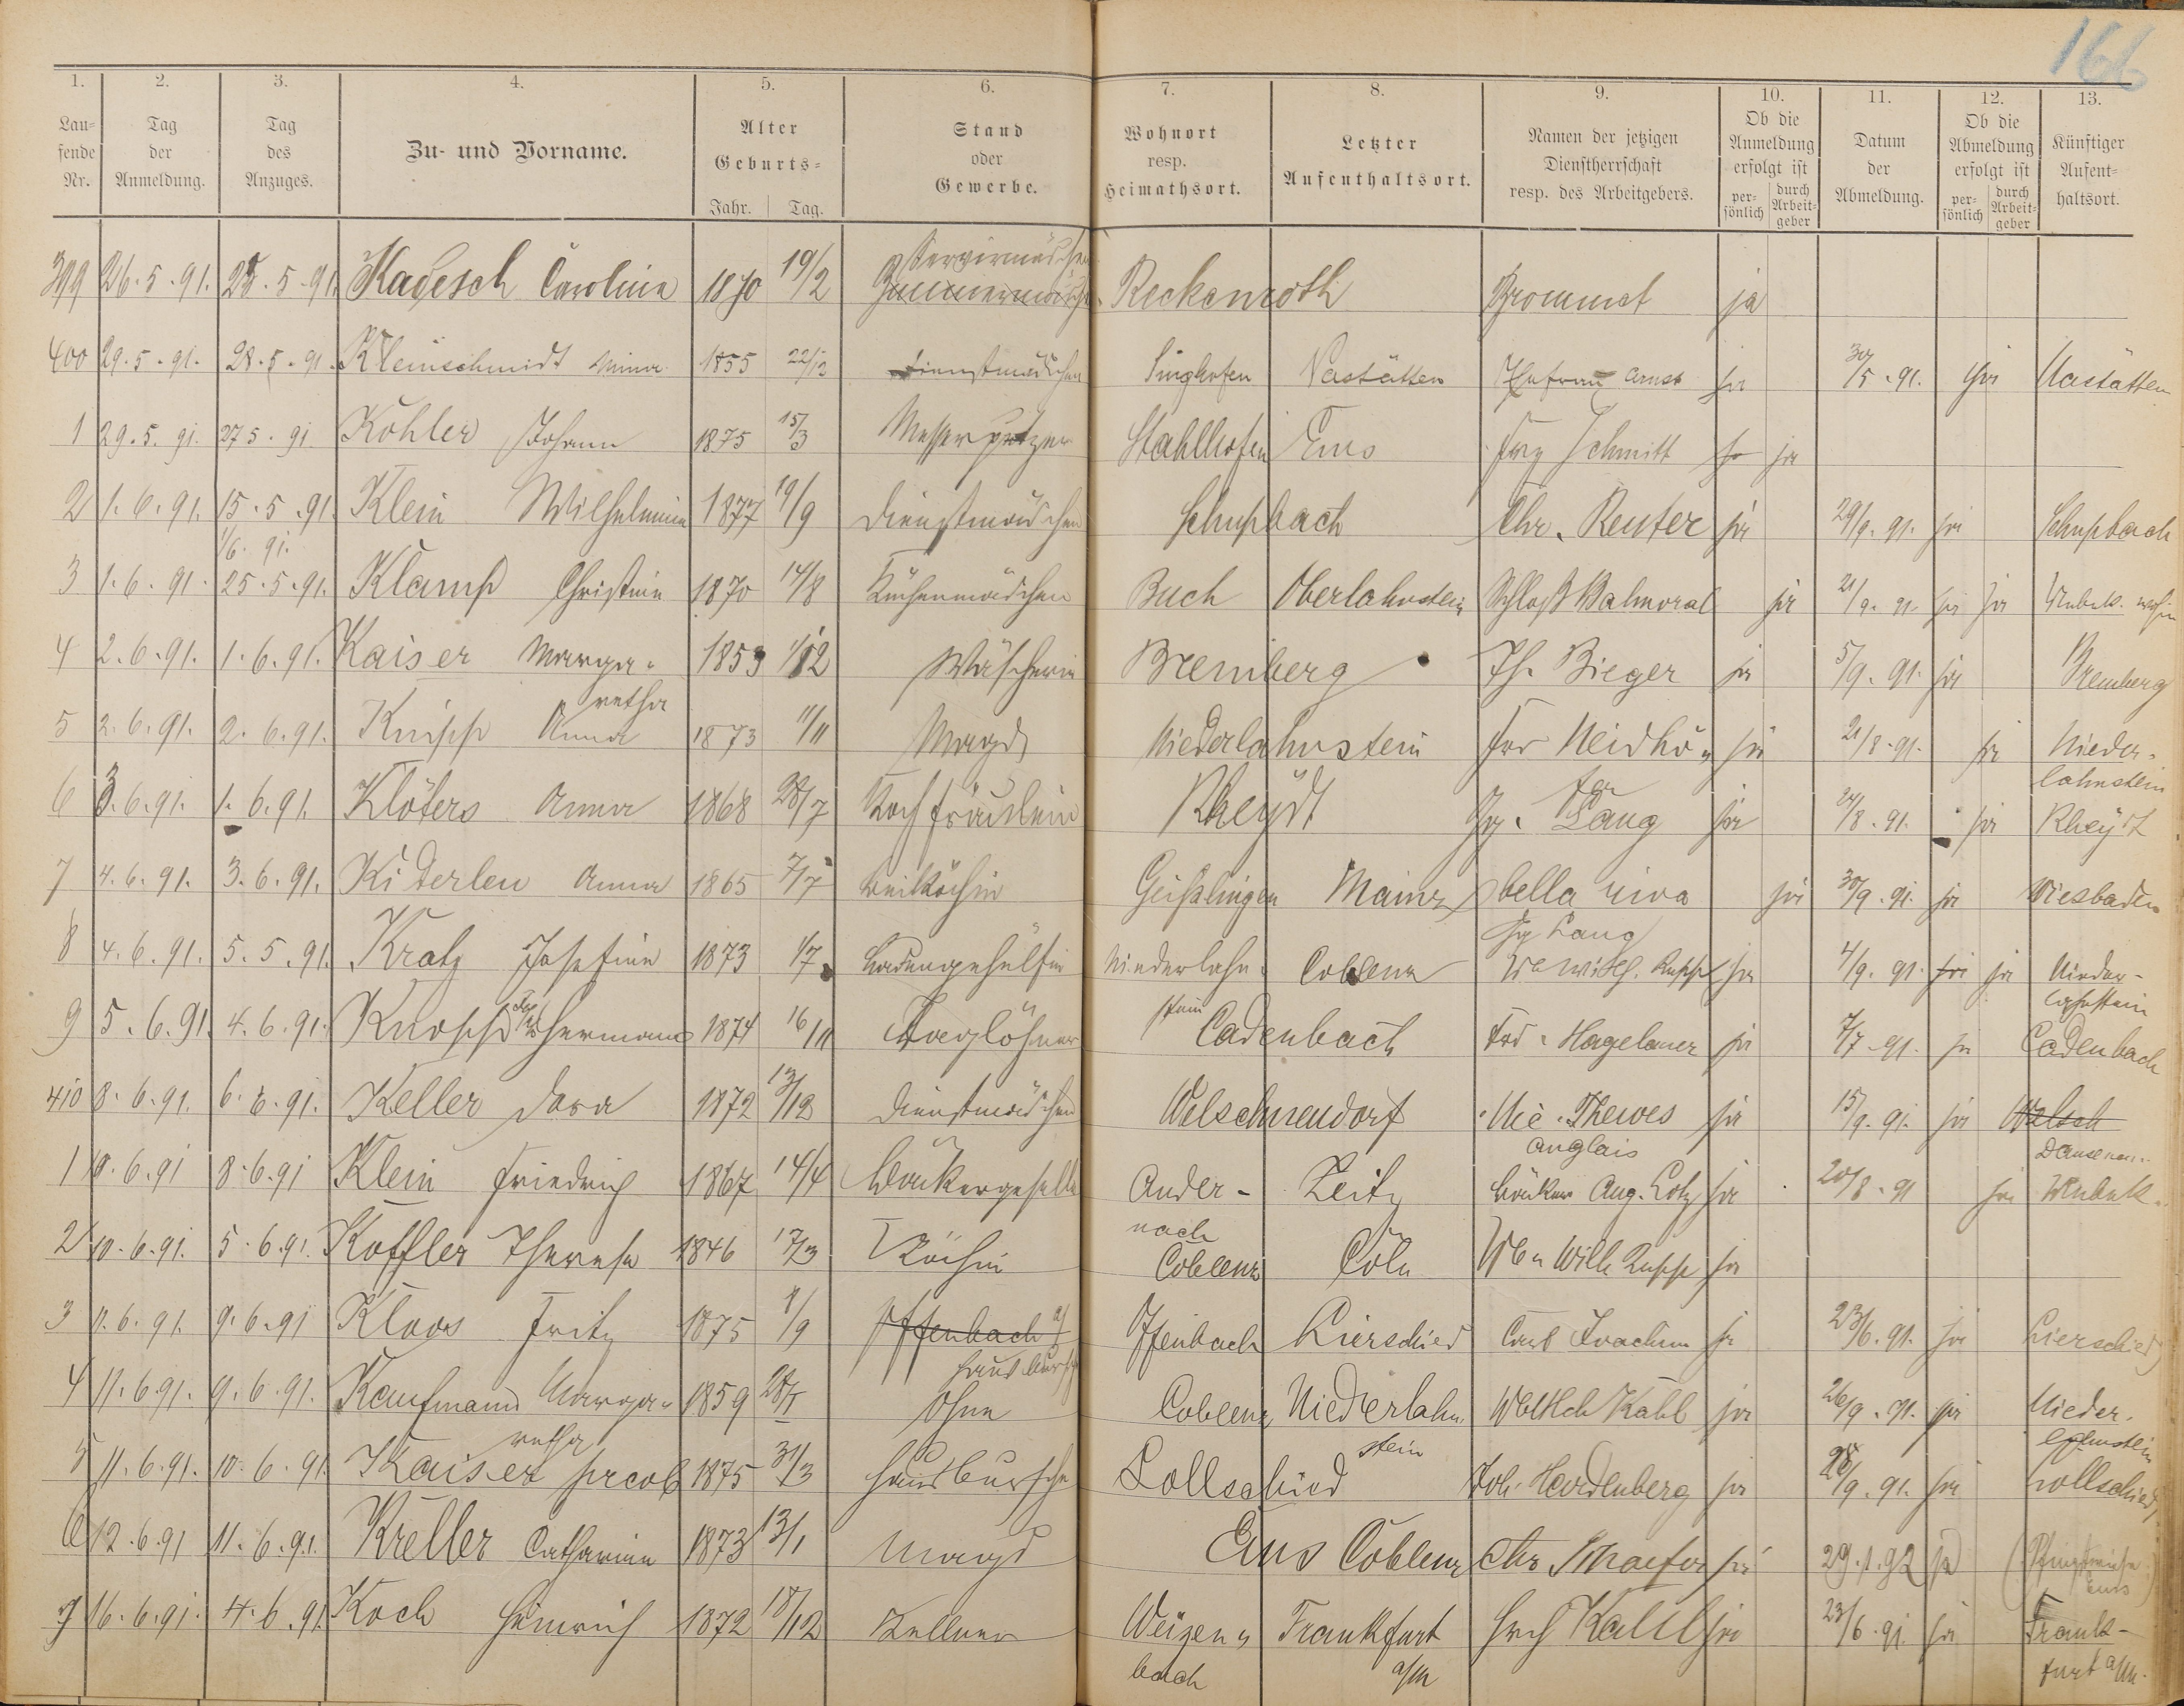 166
1. 2. 3. 4. 5. 6. 7. 8. 9. 10. 11. 12. 13.
Lau=fende Nr. Tag der Anmeldung. Tag des Anzuges. Zu- und Vorname. Alter Geburts= Jahr. Tag. Stand oder Gewerbe. Wohnort resp. Heimathsort. Letzter Aufenthaltsort. Namen der jetzigen Dienstherrschaft resp. des Arbeitgebers. Ob die Anmeldung erfolgt ist per=sönlich durch Arbeit=geber Datum der Abmeldung. Ob die Abmeldung erfolgt ist per=sönlich durch Arbeit=geber Künftiger Aufent=haltsort.
399 26.5.91. 25.5.91. Kadesch Caroline 1870 19/2 Servirmädchen Zimmermädchen Reckenroth Brommet ja
400 29.5.91. 28.5.91 Kleinschmidt Mina 1855 Dienstmädchen Singhofen Nastätten Ehefrau Arnst ja 30/5.91. ja Nastätten
1 29.5.91. 27.5.91 Köhler Johann 1875 15/3 Messerputzer Stahlhofen Ems Schmitt ja
2 1.6.91. 15.5.91. Klein Wilhelmine 1877 19/9 Dienstmädchen Schupbach Chr. Reuter ja 29/9.91. ja Schupbach
1/6.91.
3 1.6.91. 25.5.91. Klamp Christine 1870 14/8 Küchenmädchen Buch Oberlahnstein Schloß Balmoral ja 21/9.91. ja ja Unbek. wohin
4 2.6.91. 1.6.91. Kaiser Marga- 1853 Wäscherin Bremberg Jh. Bieger ja 5/9.91. ja Bremberg
retha
5 2.6.91. 2.6.91. Knipp Anna 1873 11/11 Magd Niederlahnstein ja 21/8.91. ja Nieder-
lahnstein
6 3.6.91. 1.6.91. Klöters Anna 1868 28/7 Kochfräulein Rheydt Lang ja 24/8.91. ja Rheydt
7 4.6.91. 3.6.91. Kiderlen Anna 1865 7/7 Beiköchin Geißlingen Mainz bella riva ja 30/9.91. ja Wiesbaden
Lang
8 4.6.91. 5.5.91. Kratz Josefine 1873 1/7 Ladengehülfin Niederlahn- Coblenz Wwe Wilh. Rupp ja 4/9.91. ja ja Nieder-
stein lahnstein
9 5.6.91. 4.6.91. Knopp Hermann 1874 16/11 Taglöhner Cadenbach Hagelauer ja 7/7.91. ja Cadenbach
410 8.6.91. 6.6.91. Keller Dora 1872 13/12 Dienstmädchen Welschneudorf Nic. Thewes ja 15/9.91. ja Welsch
anglais Dausenau
1 10.6.91 8.6.91 Klein Friedrich 1867 14/4 Bäckergeselle Ander- Zeitz Bäcker Aug. Lotz ja 20/8.91 ja Unbek.
nach
2 10.6.91. 5.6.91. Koffler Therese 1846 17/3 Köchin Coblenz Cöln Wwe Wilh Rupp ja
3 11.6.91. 9.6.91 Kloos Fritz 1875 8/9 Iffenbach Iffenbach Lierschied Carl Joachim ja 23/6.91. ja Lierschied
Hausbursche
4 11.6.91. 9.6.91. Kaufmann Marga- 1859 Ohne Coblenz Niederlahn- Kahl ja 26/9.91. ja Nieder-
retha stein lahnstein
5 11.6.91. 10.6.91 Kaiser Jacob 1875 31/3 Hausbursche Lollschied Joh. Hardenberg ja 28/9.91. ja Lollschied
6 12.6.91 11.6.91. Kreller Catharina 1873 13/1 Magd Ems Coblenz Chr Schaefer ja 29.1.92 ja (Pfingstwiese Ems)
7 16.6.91. 4.6.91. Koch Heinrich 1872 18/12 Kellner Weizen- Frankfurt Kahl ja 23/6.91. ja Frank-
bach a/M furt a/M.